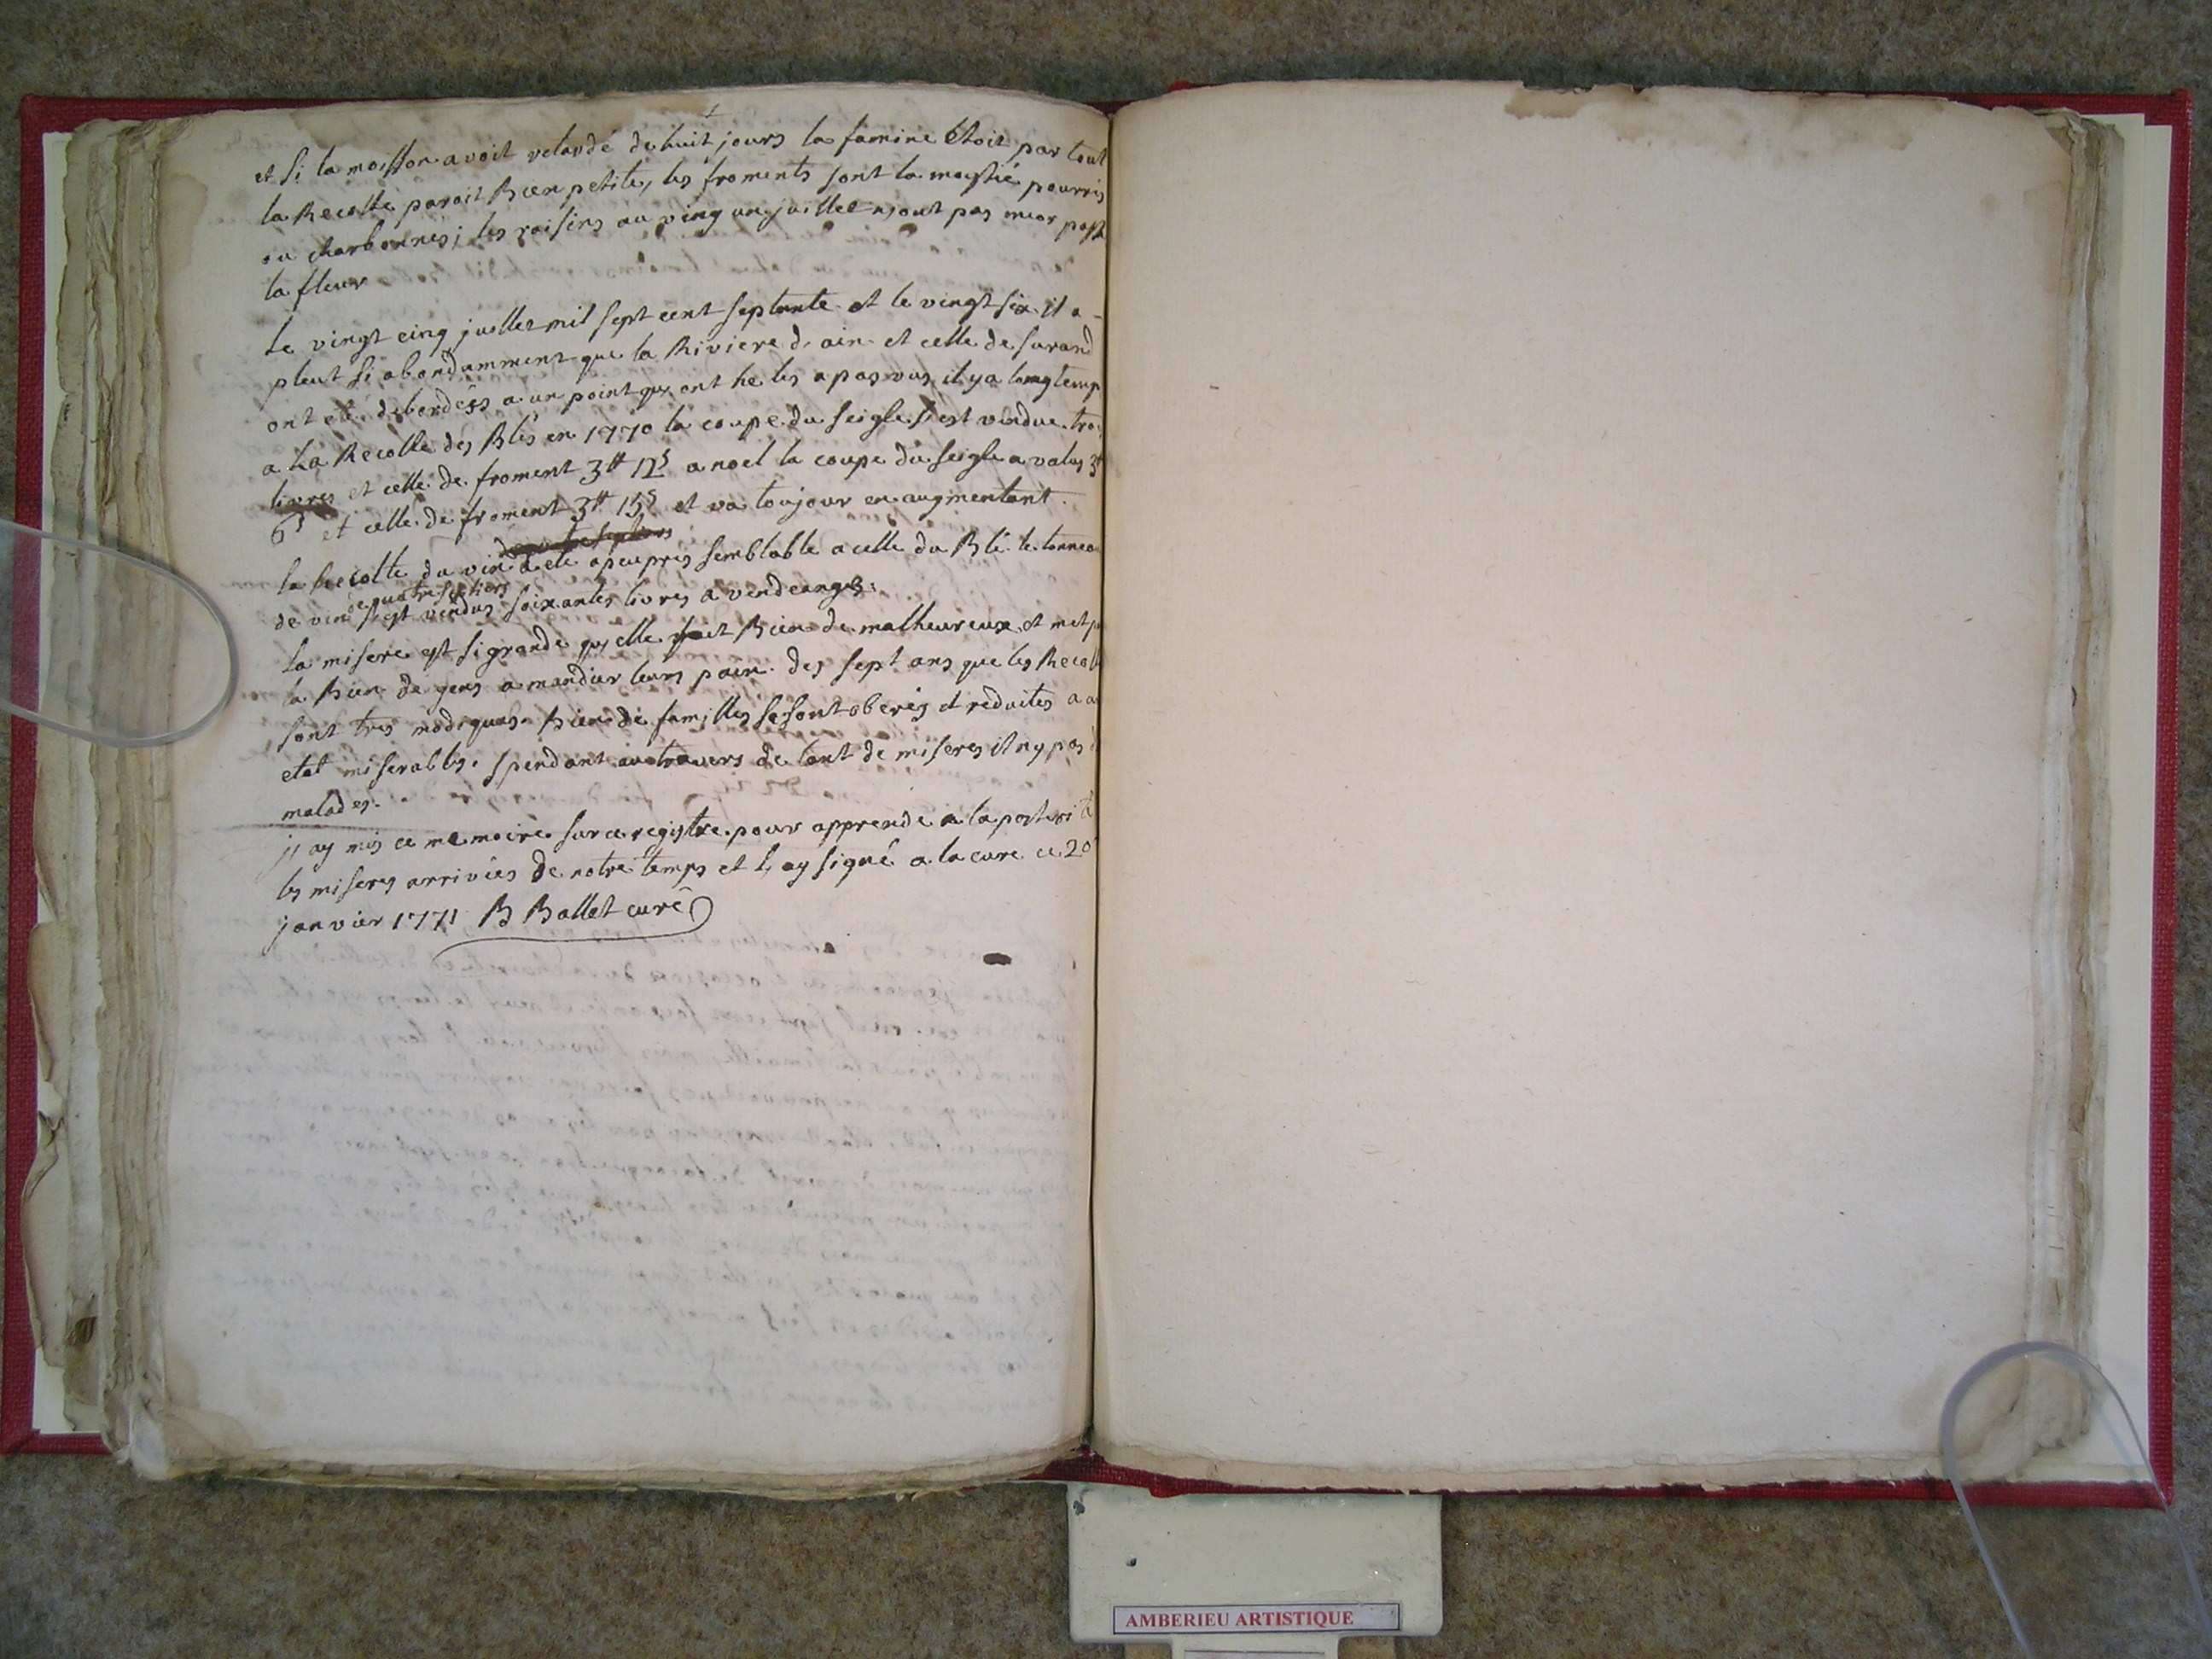 et si la moisson avoit retardé de huit jours la famine étoit par tout
la Recolte paroit Bien petite, les froments sont la moytié pourris
ou charbonnés; les raisins au ving un juillet n,ont pas encor passé
la fleur
Le vingt cinq juillet mil sept cent septante et le vingt six il a
pleut si abondamment que la Riviere d, ain et celle de surand
ont eté debordées a un point qu, ont ne les a pas vus il y a longtemp
a La Recolte des Blés en 1770 la coupe du seigle s'est vendue troi
livres et celle de froment 3tt 12s a noel la coupe du seigle a valus 3tt
6s et celle de froment 3tt 15s et va toujour en augmentant.
la Recolte du vin a eté apeupres semblable a celle du Blé le tonneau
de quatre septiers
de vin s'est vendus soixantes livres a vendeanges.
la misere est si grande qu, elle fait Bien de malheureux et met
la Bien de gens a mandier leurs pain. des sept ans que les Recolt
sont tres modiques. Bien de familles se sont oberés et reduites a
etat miserables. spendant au travers de tant de miseres il n,y pas
malades.
j, ay mis ce memoire sur ce registre pour apprende a la posterité
les miseres arrivées de notre temps et l, ay signé a la cure ce 20
janvier 1771 B Ballet curé
AMBERIEU ARTISTIQUE